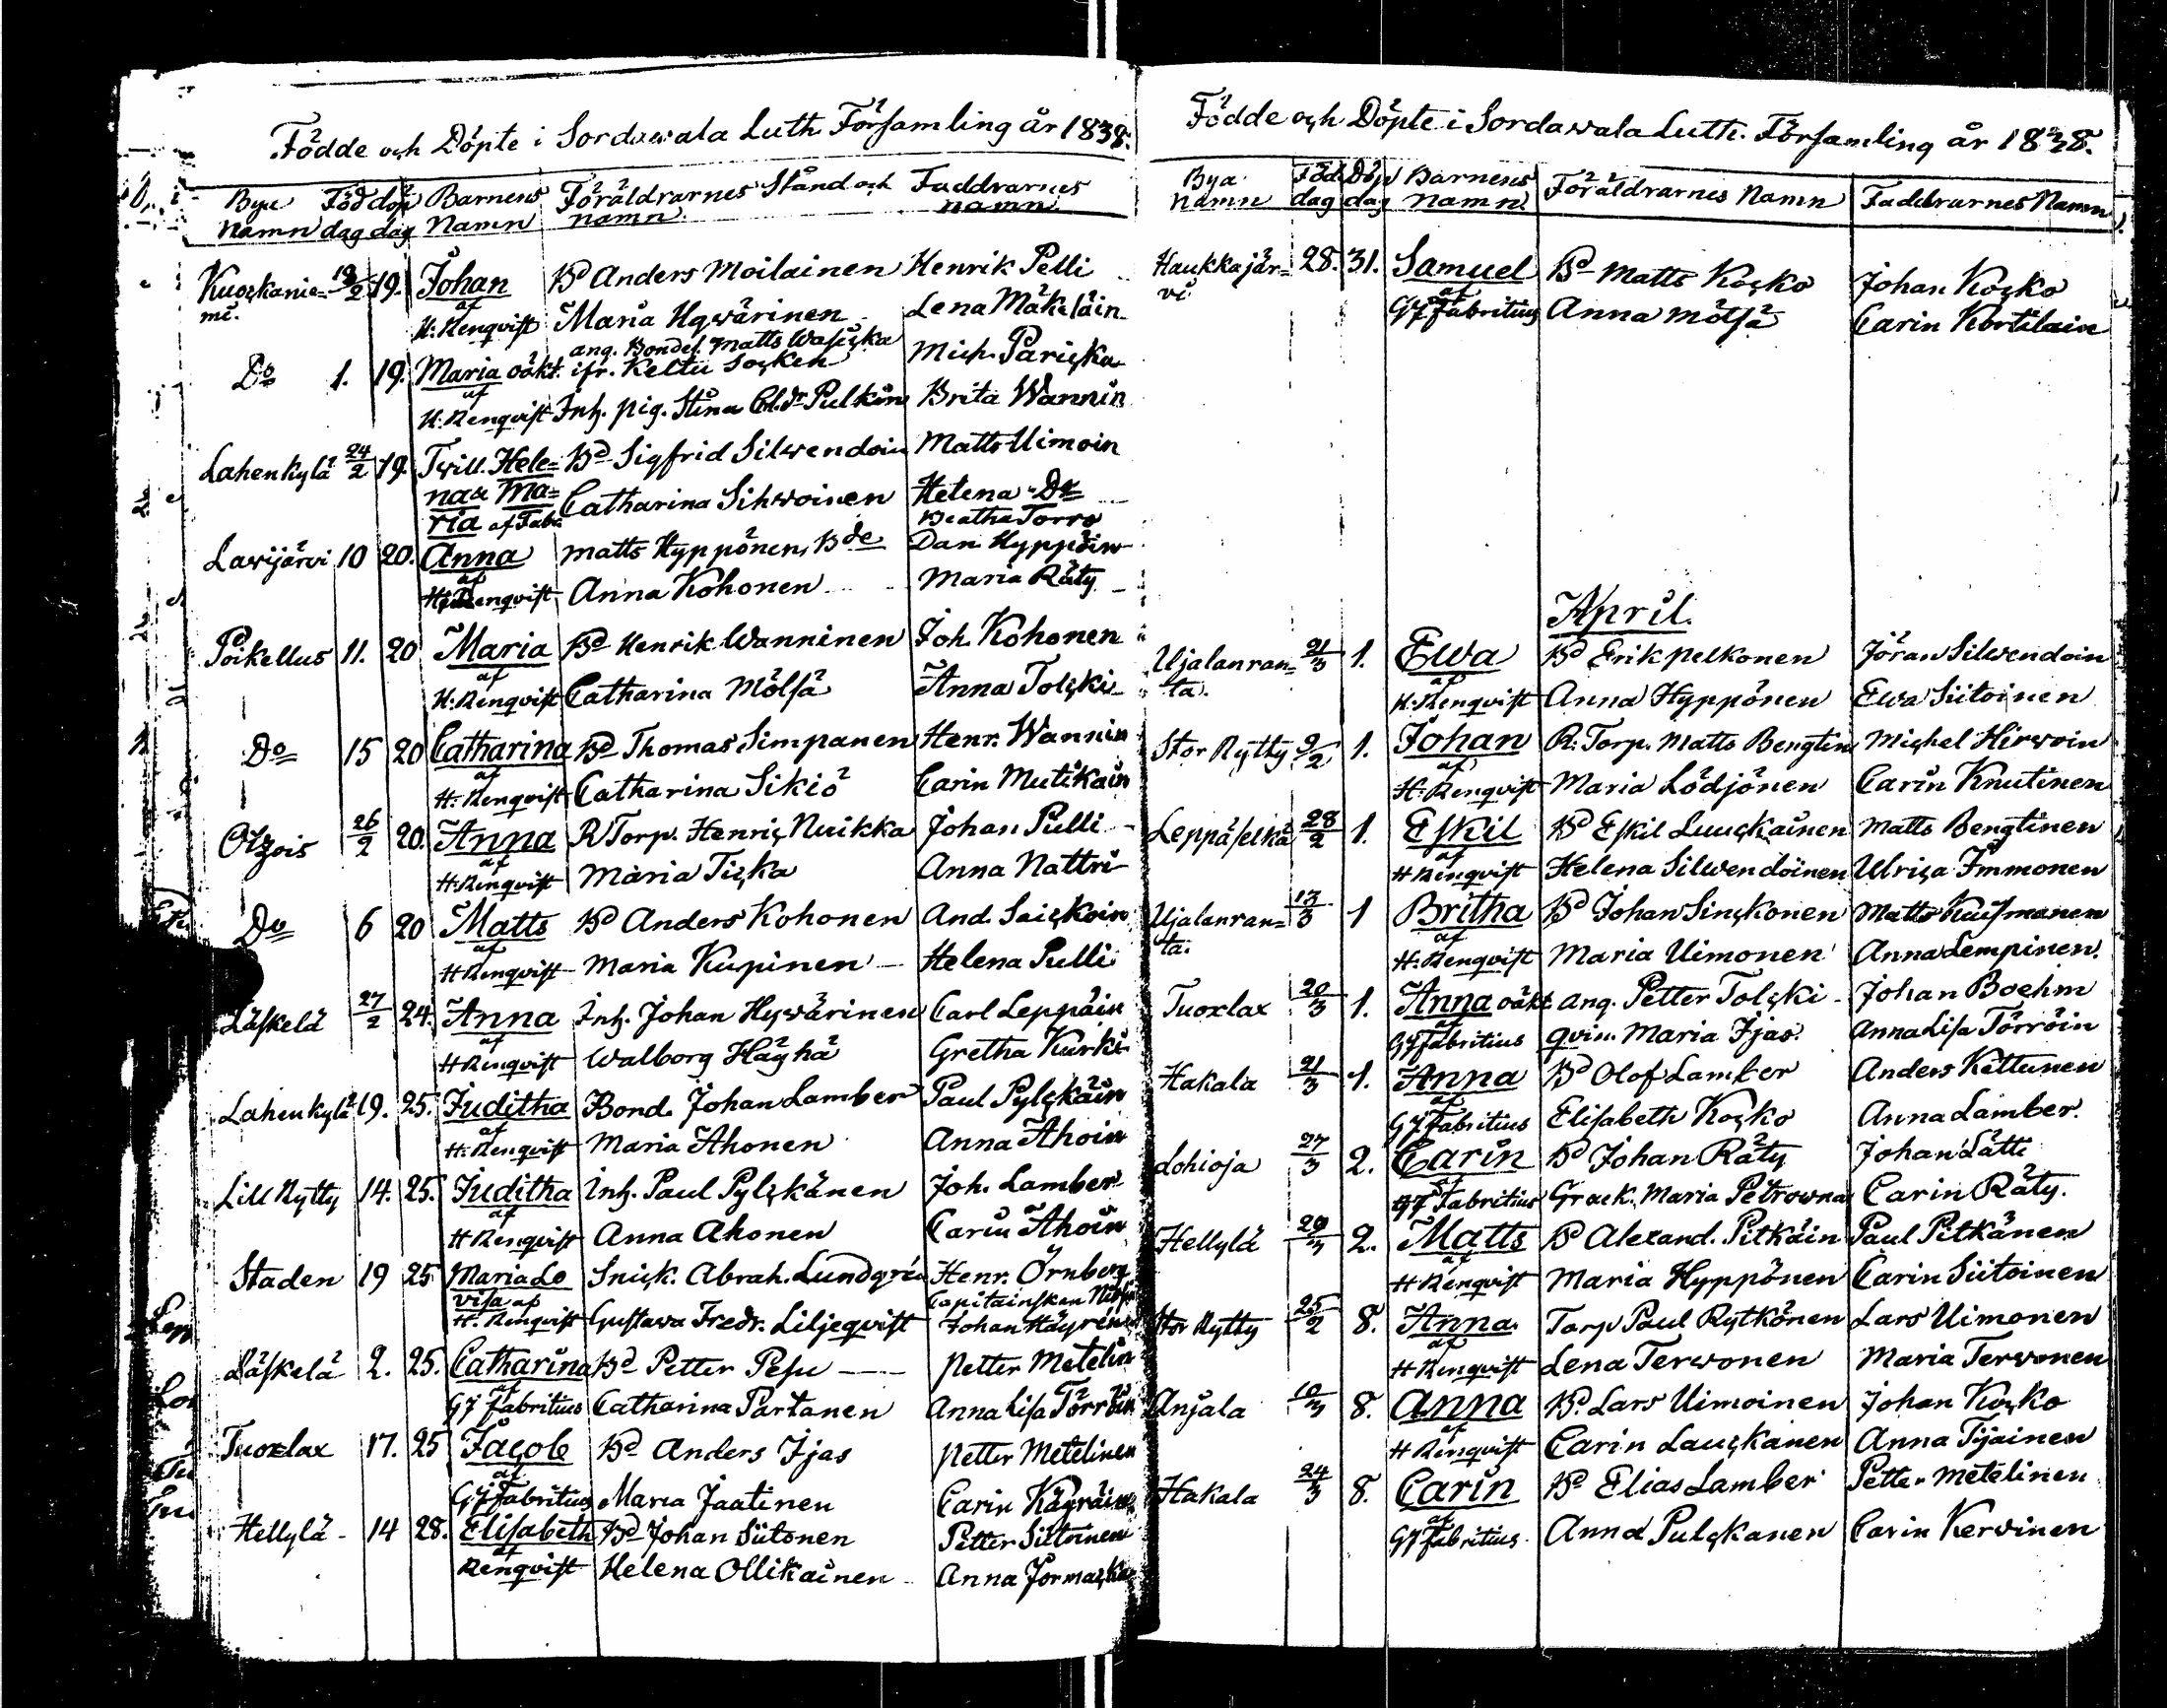 Födde och Döpte i Sordawala Luth. Församling år 1838.
Bya Föd döp Barnens Föräldrarnes Stånd och Faddrarnes
Namn dag dag Namn namn. namn.
Kuockanie- 18/2 19. Johan Bd Anders Moilainen Henrik Pelli
mi. af
H. Renqvist Maria Hywärinen Lena Mäkeläin
ang. Bondes. Matts Wasicka
Do 1. 19. Maria oäkt. ifr. Keltu Socken Mich. Paricka
af
H. Renqvist Inh. pig. Stina Pulkin Brita Wannin
Lahenkylä 24/2 19. Twill. Hele- Bd Sigfrid Silwendoin Matts Uimoin
na & Ma- Catharina Sihwoinen Helena Do
ria af Fabr. Beatha Torro
Lawijärvi 10 20. Anna Matts Hyppönen, Bde Dan Hyppöin
af
H. Renqvist Anna Kohonen Maria Räty
Poikellus 11. 20 Maria Bd Henrik Wanninen Joh. Kohonen
af
H. Renqvist Catharina Mölsä Anna Tolcki
Do 15 20 Catharina Bd Thomas Simpanen Henr. Wannin
af
H. Renqvist Catharina Sikiö Carin Mutikain
Otzois 26/2 20. Anna R Torp. Henric Nuikka Johan Pulli
af
H. Renqvist Maria Ticka Anna Nattri
Do 6 20 Matts Bd Anders Kohonen And. Saickoin
af
H Renqvist Maria Kupinen Helena Pulli
Läskelä 27/2 24. Anna Inh. Johan Hywärinen Carl Leppäin
af
H Renqvist Walborg Häyhä Gretha Kurki
Lahenkylä 19. 25. Juditha Bond. Johan Lamber Paul Pylckäin
af
H. Renqvist Maria Ahonen Anna Ahoin
Lill Rytty 14. 25. Juditha Inh. Paul Pylckänen Joh. Lamber
af
H Renqvist Anna Ahonen Carin Ahoin
Staden 19 25 Maria Lo Snick. Abrah. Lundgrén Henr. Örnberg
visa af Capitainskan
H. Renqvist Gustawa Fredr. Liljeqvist Johan Häyrén
Läskelä 2. 25. Catharina Bd Petter Pesu Petter Metelin
af
GJ Fabritius Catharina Partanen Anna Lisa Törröin
Tuoxlax 17. 25 Jacob Bd Anders Ijas Petter Metelinen
af
GJ Fabritius Maria Jaatinen Carin Käyräin
Hellylä 14 28. Elisabeth Bd Johan Siitonen Petter Siitoinen
af
Renqvist Helena Ollikainen Anna Jormacka
Födde och Döpte i Sordawala Luth. Församling år 1838.
Bya Föd. Döp Barnens Föräldrarnes Namn Faddrarnes Namn
namn dag dag namn.
Haukkajär- 28. 31. Samuel Bd Matts Kocko Johan Kocko
vi af
GJ Fabritius Anna Mölsä Carin Kortelain
April.
Ujalanran- 21/3 1. Ewa Bd Erik Pelkonen Jöran Silwendoin
ta. af
H. Renqvist Anna Hyppönen Ewa Siitoinen
Stor Rytty 9/2 1. Johan R. Torp. Matts Bengtin Michel Hirwoin
af
H. Renqvist Maria Lödjönen Carin Knutinen
Leppäselkä 28/2 1. Eskil Bd Eskil Luuckainen Matts Bengtinen
af
H Renqvist Helena Silwendoinen Ulrica Immonen
Ujalanran- 13/3 1 Britha Bd Johan Sinckonen Matts Kuismanen
ta. af
H. Renqvist Maria Uimonen Anna Lempinen.
Tuoxlax 20/3 1. Anna oäkt ang. Petter Tolcki Johan Boehm
af
GJ Fabritius qvin. Maria Ijas. Anna Lisa Törröin
Hakala 21/3 1. Anna Bd Olof Lamber Anders Kettunen
af
GJ Fabritius Elisabeth Kocko Anna Lamber.
Lohioja 27/3 2. Carin Bd Johan Räty Johan Lätti
af
GJ Fabritius Graek. Maria Petrowna Carin Räty.
Hellylä 29/3 2. Matts Bd Alexand. Pitkäin Paul Pitkänen
af
H Renqvist Maria Hyppönen Carin Siitoinen
Stor Rytty 25/2 8. Anna Torp Paul Rytkönen Lars Uimonen
af
H Renqvist Lena Terwonen Maria Terwonen
Anjala 10/3 8. Anna Bd. Lars Uimoinen Johan Kocko
af
H Renqvist Carin Lauckanen Anna Tijainen
Hakala 24/3 8. Carin Bd Elias Lamber Petter Metelinen
af
GJ Fabritius. Anna Pulckanen Carin Kerwinen